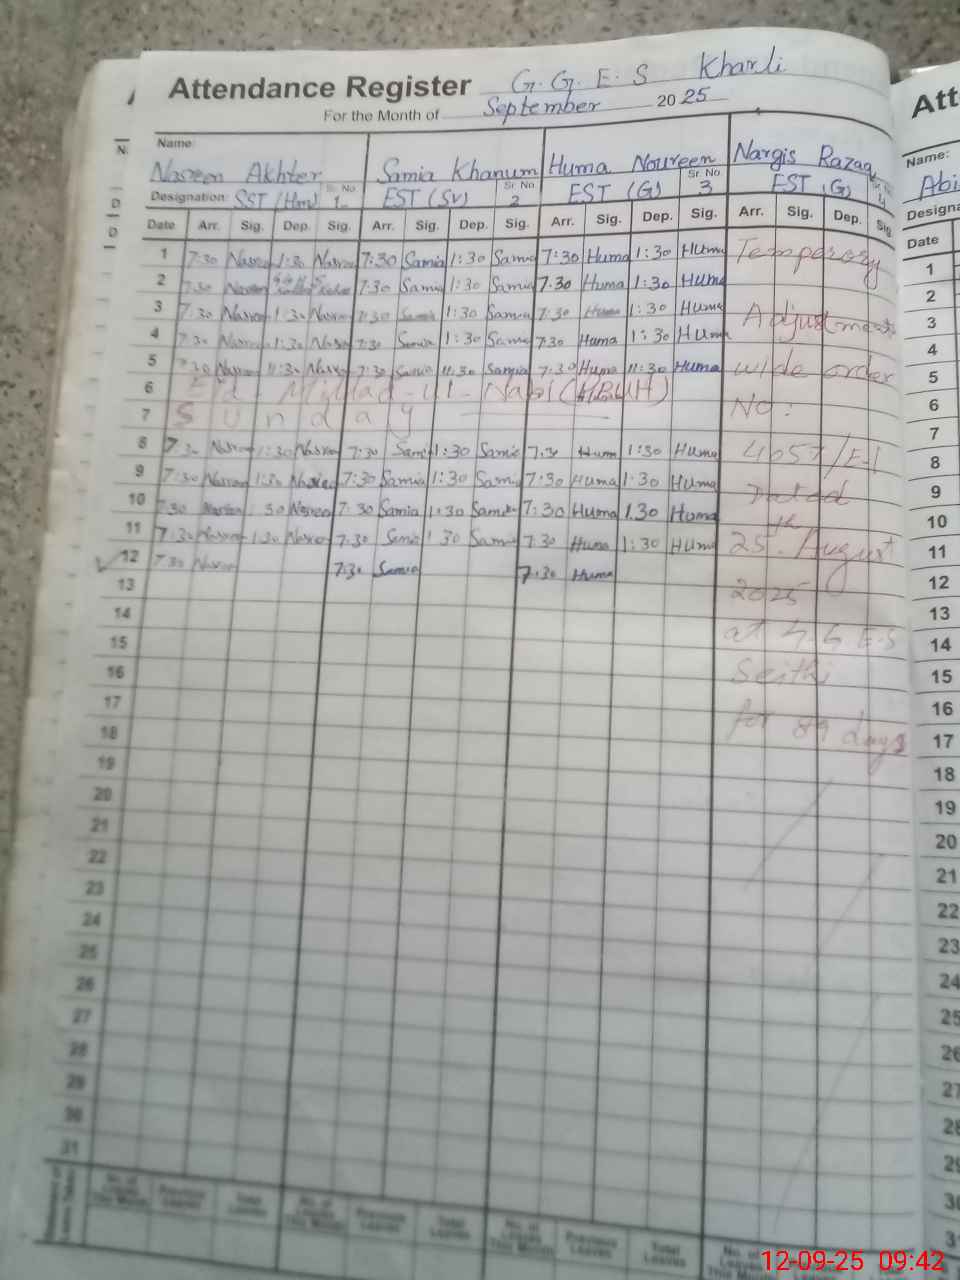 Attendance Register G.G.E.S Kharli
For the Month of September 2025
Name:
Nasreen Akhter Samia Khanum Huma Noureen Nargis Razaq
Designation: SST (Hm) Sr. No 1 EST (SV) Sr. No 2 EST (G) Sr. No 3 EST (G) Sr. No 4
Date Arr. Sig. Dep. Sig. Arr. Sig. Dep. Sig. Arr. Sig. Dep. Sig. Arr. Sig. Dep. Sig.
1 7:30 Nasreen 1:30 Nasreen 7:30 Samia 1:30 Samia 7:30 Huma 1:30 Huma Temporary
2 7:30 Nasreen 7:30 Samia 1:30 Samia 7:30 Huma 1:30 Huma
3 7:30 Nasreen 1:30 Nasreen 7:30 Samia 1:30 Samia 7:30 Huma 1:30 Huma Adjustment
4 7:30 Nasreen 1:30 Nasreen 7:30 Samia 1:30 Samia 7:30 Huma 1:30 Huma
5 7:30 Nasreen 11:30 Nasreen 7:30 Samia 11:30 Samia 7:30 Huma 11:30 Huma wide order
6 Eid-Millad-ul-Nabi (PBUH) No:
7 Sunday
8 7:30 Nasreen 1:30 Nasreen 7:30 Samia 1:30 Samia 7:30 Huma 1:30 Huma 4657/E-1
9 7:30 Nasreen 1:30 Nasreen 7:30 Samia 1:30 Samia 7:30 Huma 1:30 Huma Dated
10 7:30 Nasreen 1:30 Nasreen 7:30 Samia 1:30 Samia 7:30 Huma 1:30 Huma
11 7:30 Nasreen 1:30 Nasreen 7:30 Samia 1:30 Samia 7:30 Huma 1:30 Huma 25th August
12 7:30 Nasreen 7:30 Samia 7:30 Huma
13 2025
14 at G.G.E.S
15 Seithi
16 for 89 days
17
18
19
20
21
22
23
24
25
26
27
28
29
30
31
No. of Leaves This Month Previous Leaves Total Leaves No. of Leaves This Month Previous Leaves Total Leaves No. of Leaves This Month Previous Leaves Total Leaves No. of
Att
Name:
Abi
Designa
Date
1
2
3
4
5
6
7
8
9
10
11
12
13
14
15
16
17
18
19
20
21
22
23
24
25
26
27
28
29
30
12-09-25 09:42